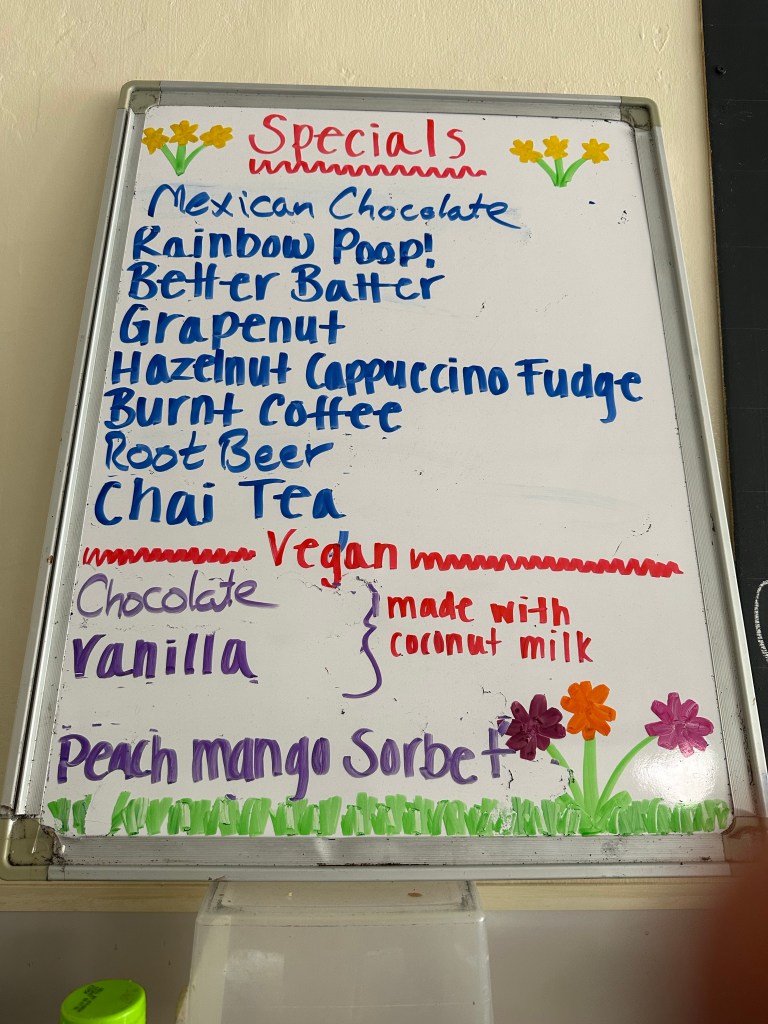 Specials
Mexican Chocolate
Rainbow Poop!
Better Batter
Grapenut
Hazelnut Cappuccino Fudge
Burnt Coffee
Root Beer
Chai Tea
Vegan
Chocolate
Vanilla
made with
coconut milk
Peach mango Sorbet